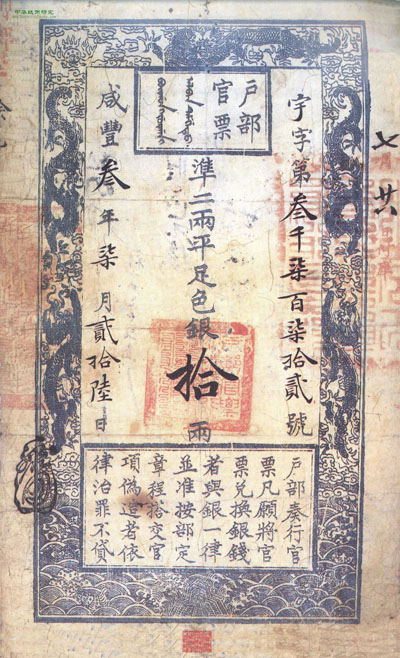 户部
官票
宇字第叁千柒百柒拾貳號
準二兩平足色銀拾兩
咸豐叁年柒月貳拾陸日
户部奏行官
票凡願將官
票兑換銀錢
者與銀一律
並准按部定
章程搭交官
項偽造者依
律治罪不貸